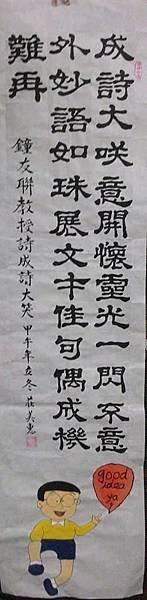 成詩大咲意開懷靈光一閃不意
外妙語如珠展文才佳句偶成機
難再
鐘友聯教授詩成詩大笑 甲午年立冬 莊美惠
good
idea
ya!